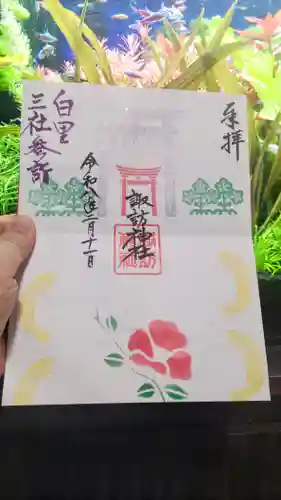 奉拝
諏訪神社
令和八年二月十一日
白里
三社参詣